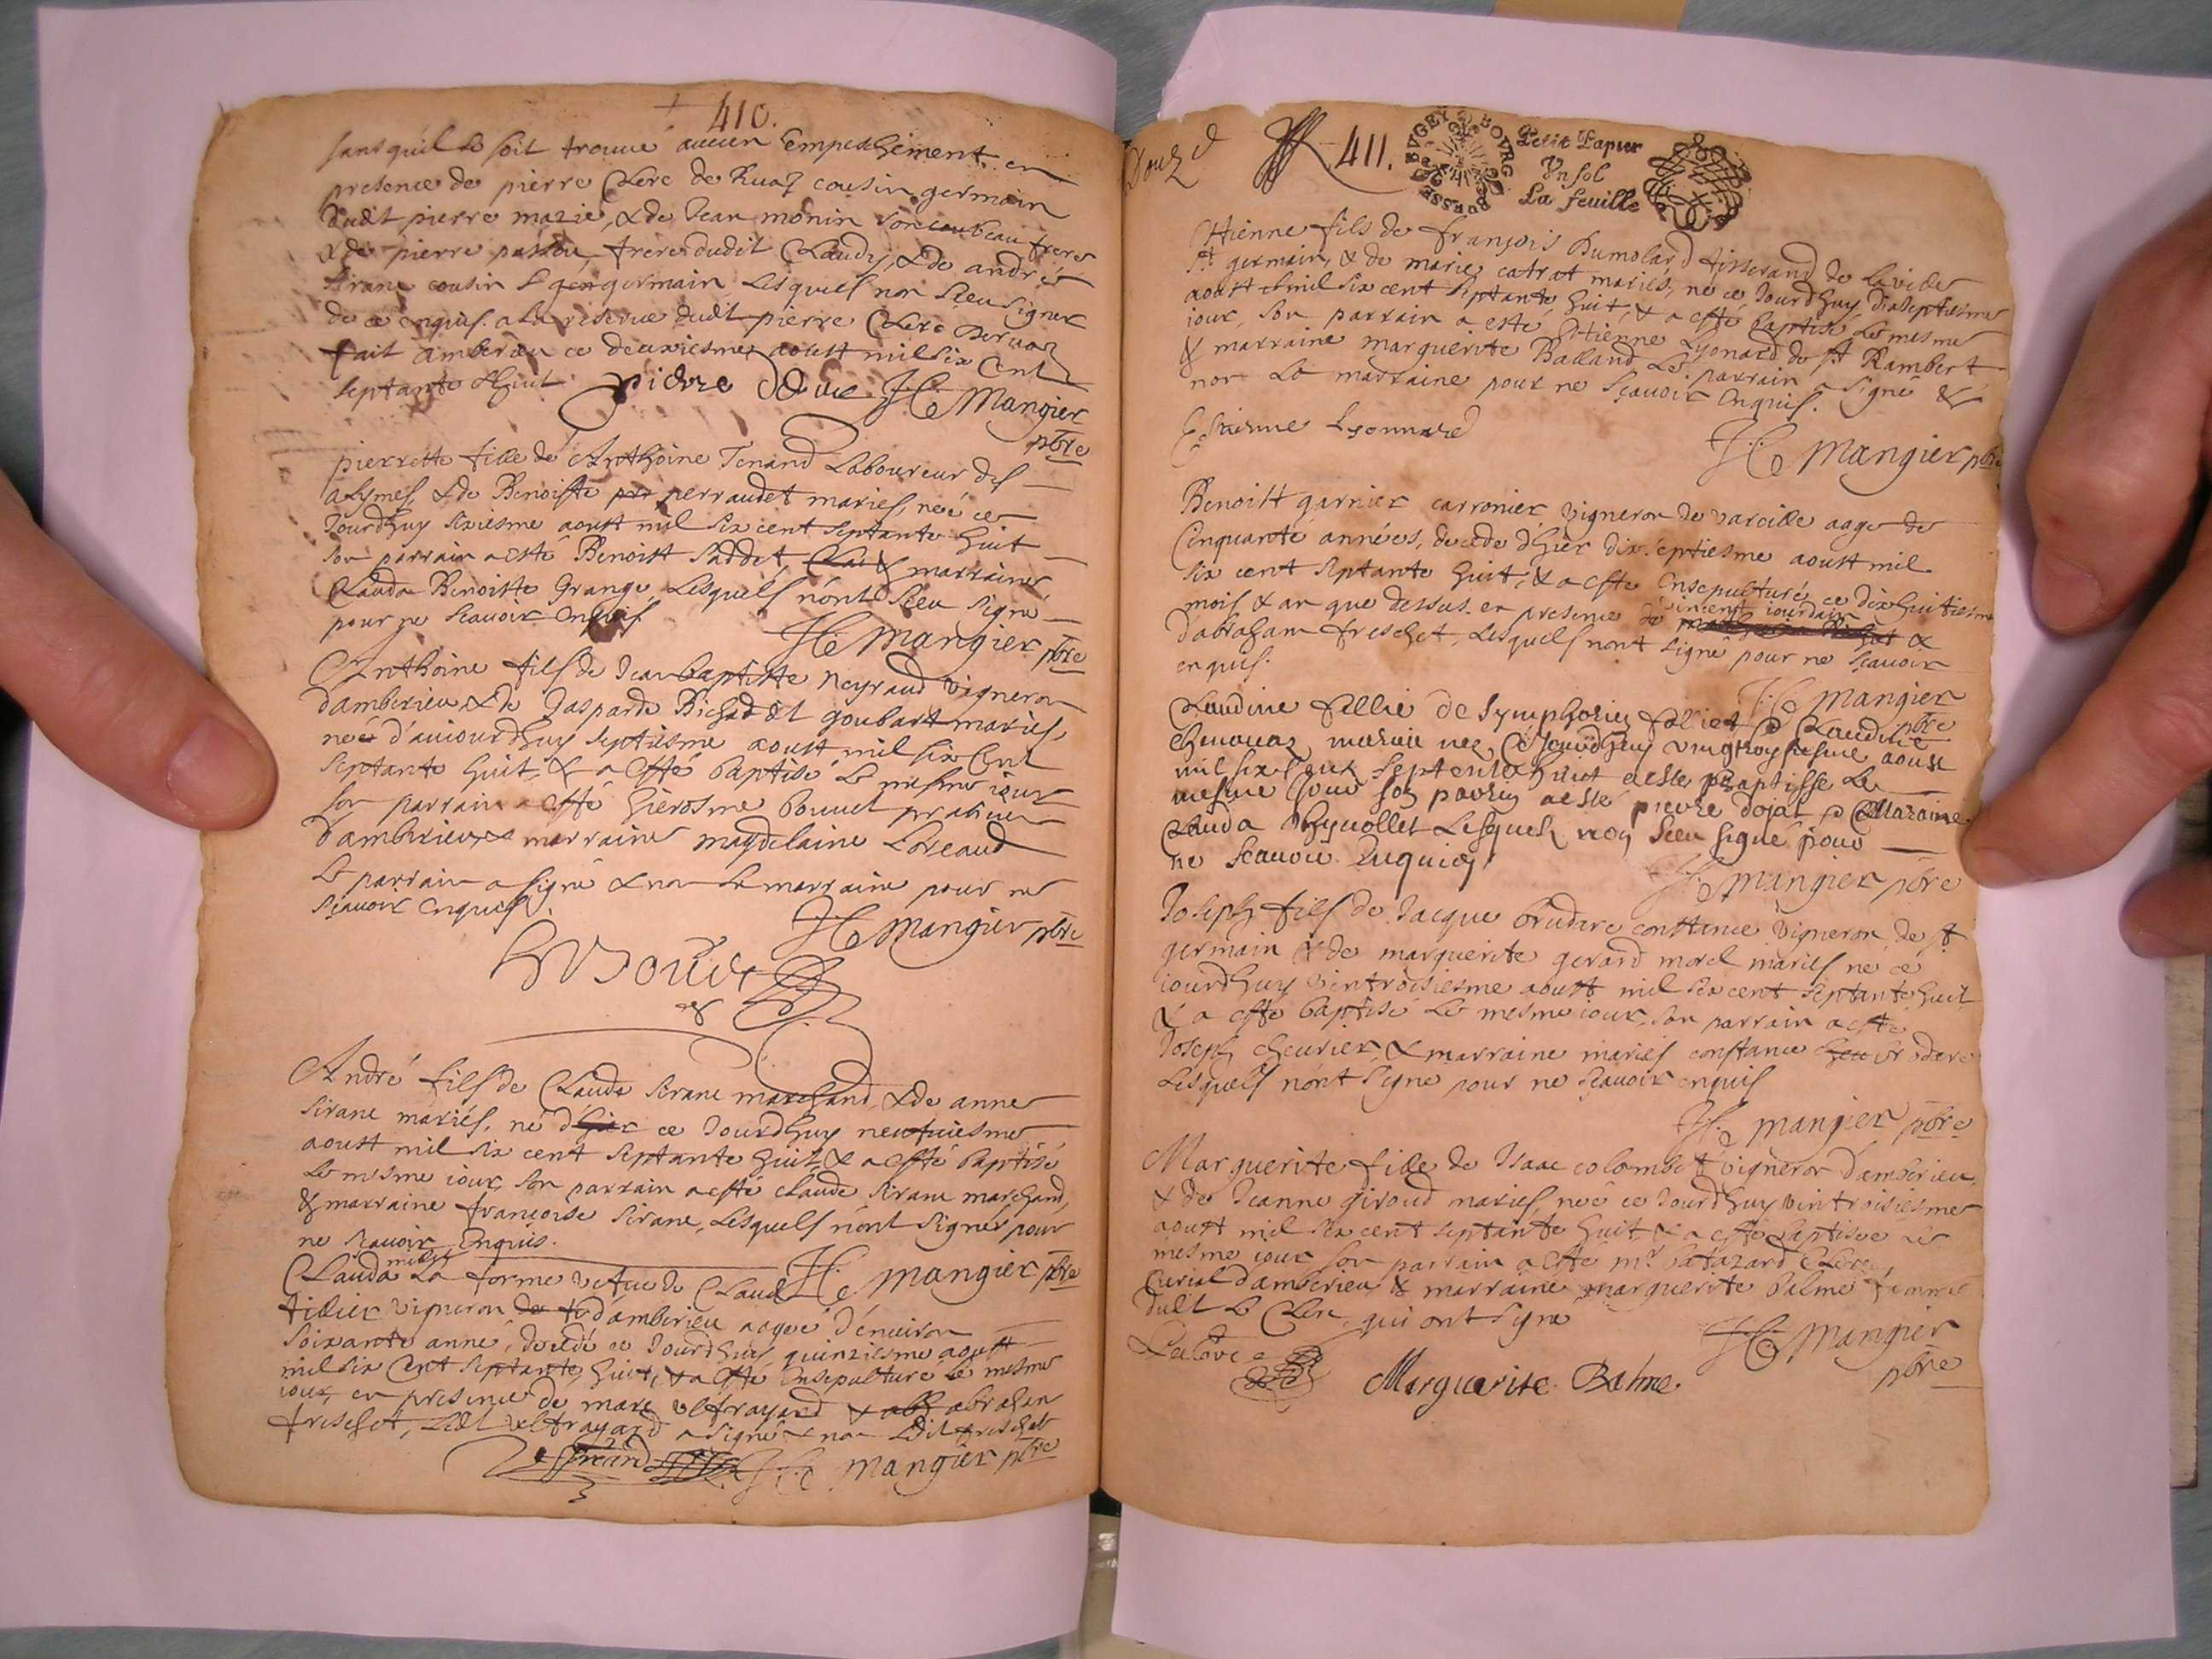 410.
sans quil se soit trouvé aucun empeschement en
presence de pierre Clerc de Ruaz cousin germain
dudit pierre marie, & de Jean monin son beau frere
& de pierre frere dudit Claudy, & de andré
Sirane cousin germain Lesquels non sceu signer
de ce enquis. a La reserve dudit pierre Clerc
fait amberieu ce deuxiesme aoust mil six Cent
septante & huit pierre H C Mangier
pbre
pierrette fille de Anthoine Tenand Laboureur des
alymes, & de Benoiste perraudet mariés, neé ce
Jourdhuy sixiesme aoust mil six cent septante huit
son parrain a esté Benoist & marraine
Clauda Benoiste Grange, Lesquels n'ont sceu signé
pour ne scavoir Enquis
H C Mangier pbre
Anthoine fils de Jean baptiste Neyraud vigneron
d'amberieu, & de Gasparde Bichat dit goubart mariés,
neé d'aujourdhuy septiesme aoust mil six Cent
septante huit, & a esté baptisé Le mesme jour
son parrain a esté hierosme bouuet praticien
d'amberieu & marraine magdelaine
Le parrain a signé & non La marraine pour ne
sçavoir Enquis
H C Mangier pbre
André fils de Claude Sirane marchand, & de anne
Sirane mariés, né d'hier ce Jourdhuy neufuiesme
aoust mil six cent septante huit, & a esté baptisé
Le mesme iour, son parrain a esté claude Sirane marchand,
& marraine francoise Sirane, Lesquels n'ont signés pour
ne sçavoir Enquis.
H C Mangier pbre
Clauda La forme vefue de Claude
tillier vigneron d'amberieu aageé d'environ
soixante anné, decedé ce Jourdhuy quinziesme aoust
mil six Cent septante huit, & a esté Ensepulturé Le mesme
iour, en presence de marc & abrahan
freschet, Ledit a signé & non Ledit freschet
H C Mangier pbre
411.
BVGEY BOVRG BRESSE
Petit Papier
Vn sol
La feuille
Etienne fils de françois Dumolard tisserand de la ville
St germain, & de marie catrat mariés, né ce Jourdhuy dixseptiesme
aoust mil six cent septante huit, & a esté baptisé Le mesme
iour, son parrain a esté Etienne Lyonard de St Rambert
& marraine marguerite Balland Le parrain a signé &
non La marraine pour ne sçavoir Enquis.
Estienne Lyonnard
H C Mangier pbre
Benoist garnier carronier vigneron de vareille aage de
Cinquante années, decede d'hier dixseptiesme aoust mil
six cent septante huit, & a esté Ensepulturé ce dixhuitiesme
mois & an que dessus. en presence de vincent iourdain &
d'abraham freschet, Lesquels n'ont signé pour ne sçavoir
enquis.
H C Mangier
pbre
Claudine fillie de Symphorien folliet & Claudine
Chenavaz mariés nee Cejourdhuy vingtroysiesme aoust
mil six Cent septente huict a esté Baptisse Le
mesme Jour son parrin a esté pierre Dojat & Maraine
Clauda Lesquels non sceu signé pour
ne scavoir Enquis
H C Mangier pbre
Joseph fils de Jacque brudere constance vigneron de St
germain & de marguerite gerard morel mariés né ce
iourdhuy vintroisiesme aoust mil six cent septante huit
& a esté baptisé Le mesme iour, son parrain a esté
Joseph cheurier, & marraine marie constance brodere
Lesquels n'ont signé pour ne sçavoir enquis
H C Mangier pbre
Marguerite fille de Isaac colombet vigneron d'amberieu,
& de Jeanne giroud mariés, neé ce Jourdhuy vintroisiesme
aoust mil six cent septante huit & a esté baptiseé Le
mesme iour son parrain a esté mr. batazard Clerc
Curial d'amberieu & marraine marguerite balme femme
dudit Le Clerc, qui ont signé
H C Mangier
pbre
Leclerc
Marguerite Balme